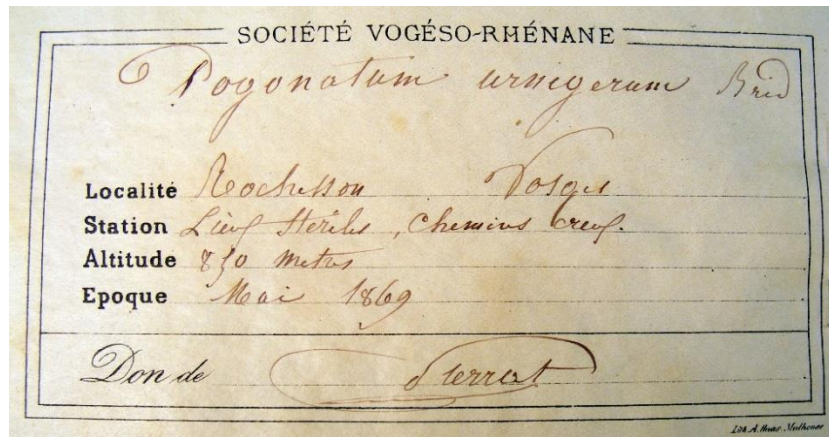 SOCIÉTÉ VOGÉSO-RHÉNANE
Pogonatum urnigerum Brid
Localité Rochesson Vosges
Station Lieux stériles, Chemins creux.
Altitude 850 metres
Epoque Mai 1869
Don de Pierrat
Mulhouse